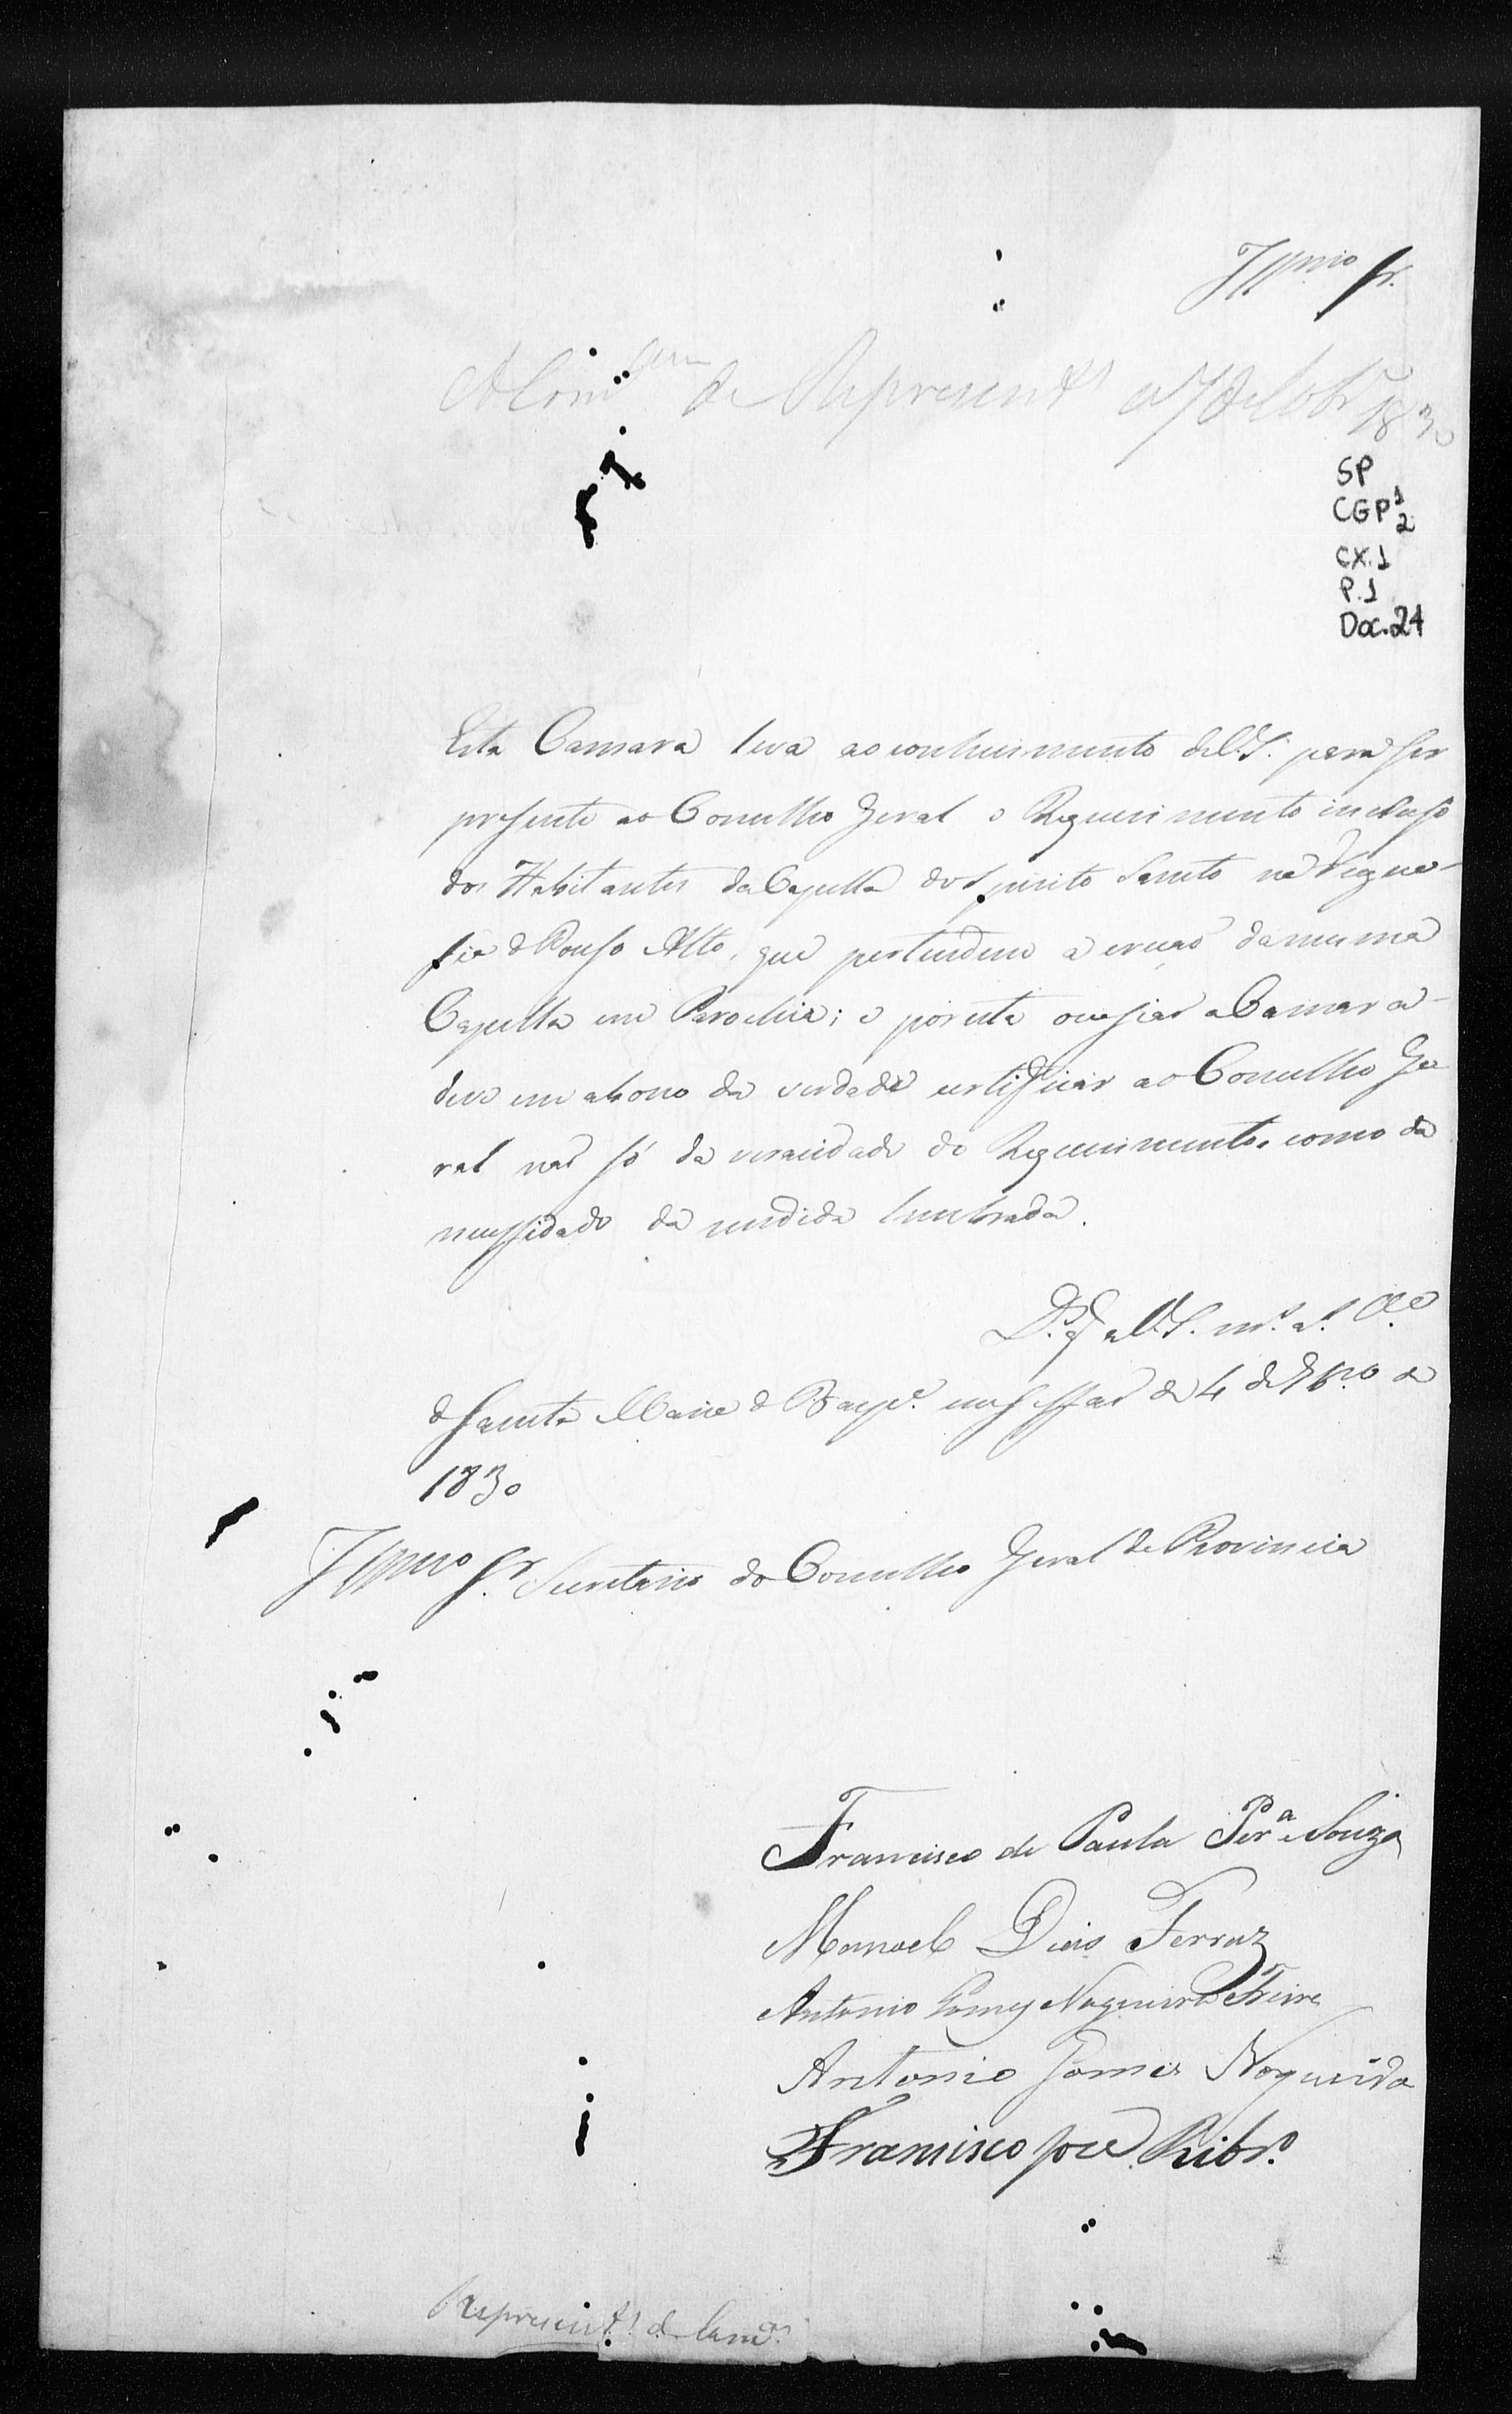 Illmo Sr.
A Comam de Represent.es a 7 de 8bro 1830
SP
CGP 1
2
CX.1
P.1
Doc.24
Esta Camara leva ao conhecimento de V.S. para ser
presente ao Conselho Geral o Requerimento incluso
dos Habitantes da Capella do Spirito Santo na Fregue-
sia de Pouso Alto, que pertendem a ereçaõ da mesma
Capella em Parochia; e por esta ocasiaõ a Camara
deve em abono da verdade certificar ao Conselho Ge
ral naõ só da veracidade do Requerimento, como da
necessidade da medida lembrada.
D.s G.e a V.S. m.s a.s
de Santa Maria de Baep.e em Sessaõ de 4 de 9bro de
1830
Illmo Sr. Secretario do Conselho Geral de Provincia
Francisco de Paula Per.a e Souza
Manoel Dias Ferraz
Antonio Gomes Nogueira Freire
Antonio Gomes Nogueira
Francisco Joze Ribr.o
Represent.es de Cam.as